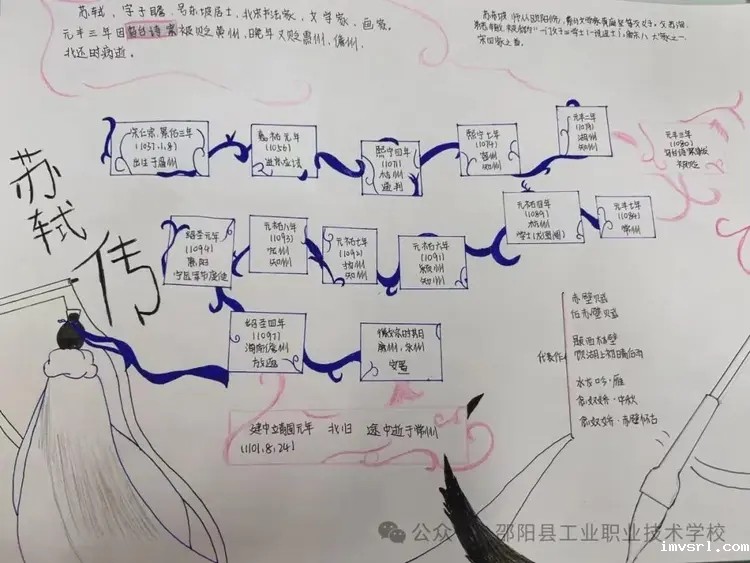 苏轼，字子瞻，号东坡居士，北宋书法家，文学家，画家。
元丰三年因乌台诗案被贬黄州，晚年又贬惠州，儋州，
北还时病逝。
苏轼传
宋仁宗景佑三年
(1037.1.8)
出生于眉州
嘉祐元年
(1056)
进京应试
熙宁四年
(1071)
杭州
通判
熙宁七年
(1074)
密州
知州
元丰二年
(1079)
湖州
知州
元丰三年
(1080)
元丰七年
(1084)
常州
元祐四年
(1089)
杭州
元祐六年
(1091)
颍州
知州
元祐七年
(1092)
扬州
知州
元祐八年
(1093)
定州
知州
绍圣元年
(1094)
惠阳
绍圣四年
(1097)
海南儋州
廉州，永州
安置
建中立靖国元年 北归 途中逝于常州
(1101,8,24)
代表作
赤壁赋
后赤壁赋
题西林壁
饮湖上初晴后雨
水龙吟·雁
念奴娇·中秋
念奴娇·赤壁怀古
邵阳县工业职业技术学校
imvsrl.com